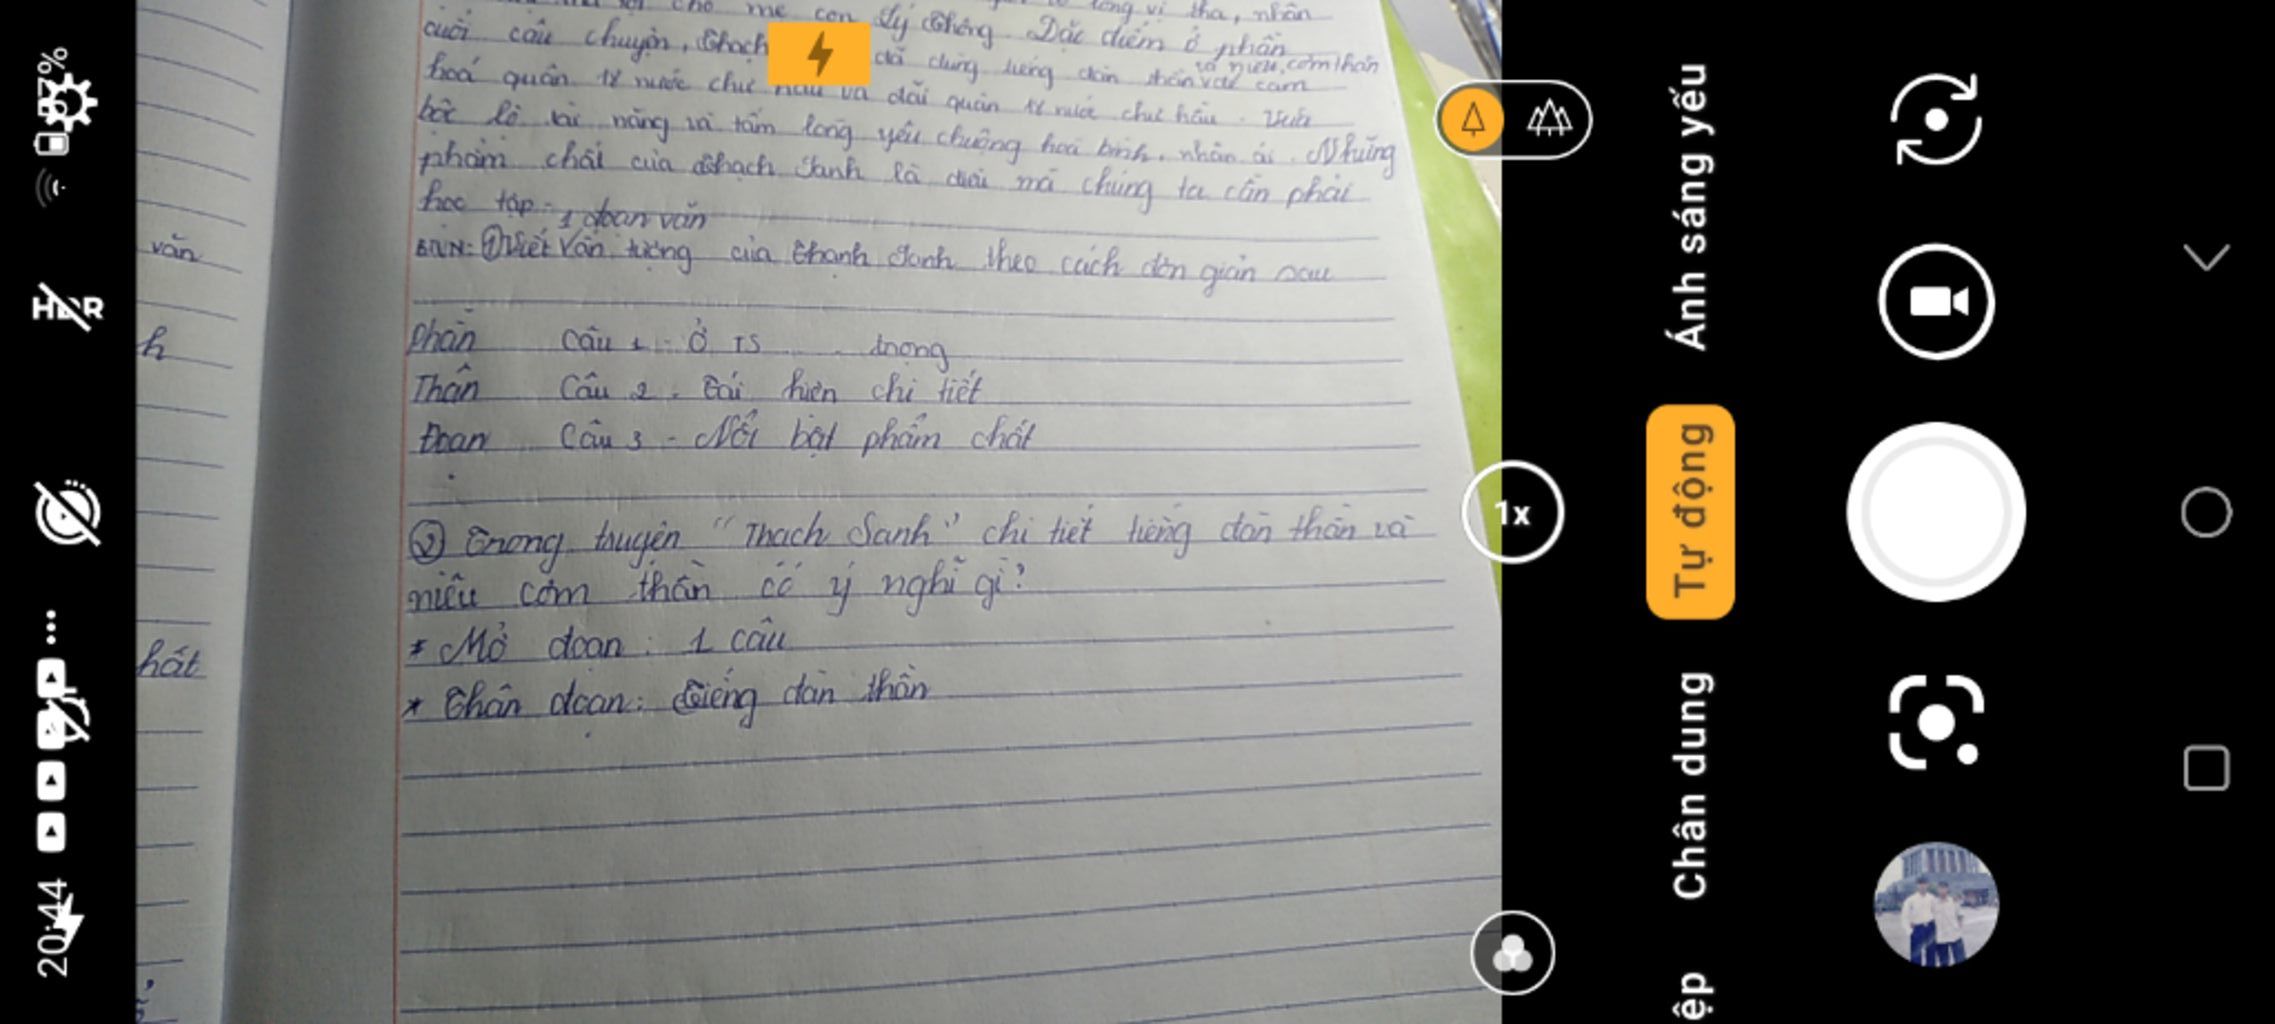 cho mẹ con Lý Thông. Đặc điểm ở phần
cuối câu chuyện, Thạch đã dùng tiếng đàn thần và niêu cơm thần
hoá quân 18 nước chư hầu và đãi quân 18 nước chư hầu. Vừa
bộc lộ tài năng và tấm lòng yêu chuộng hoà bình, nhân ái. Những
phẩm chất của Thạch Sanh là điều mà chúng ta cần phải
học tập.
1 đoạn văn
BTVN: ① Viết Văn tượng của Thanh Sanh theo cách đơn giản sau
Phần Câu 1 - Ở TS trong
Thân Câu 2 - Tái hiện chi tiết
Đoạn Câu 3 - Nổi bật phẩm chất
② Trong truyện "Thạch Sanh" chi tiết tiếng đàn thần và
niêu cơm thần có ý nghĩ gì?
* Mở đoạn: 1 câu
* Thân đoạn: Tiếng đàn thần
văn
h
hất
HDR
20:44
1x
Ánh sáng yếu
Tự động
Chân dung
ệp